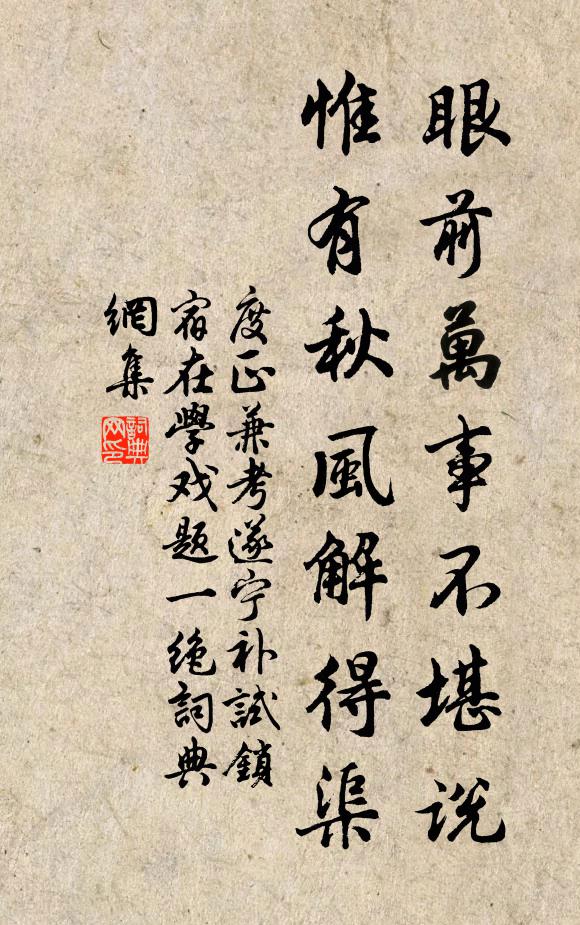 眼前萬事不堪説
惟有秋風解得渠
度正兼考遂宁补試鎖
宿在學戏题一绝詞典
網集
詞典
网印